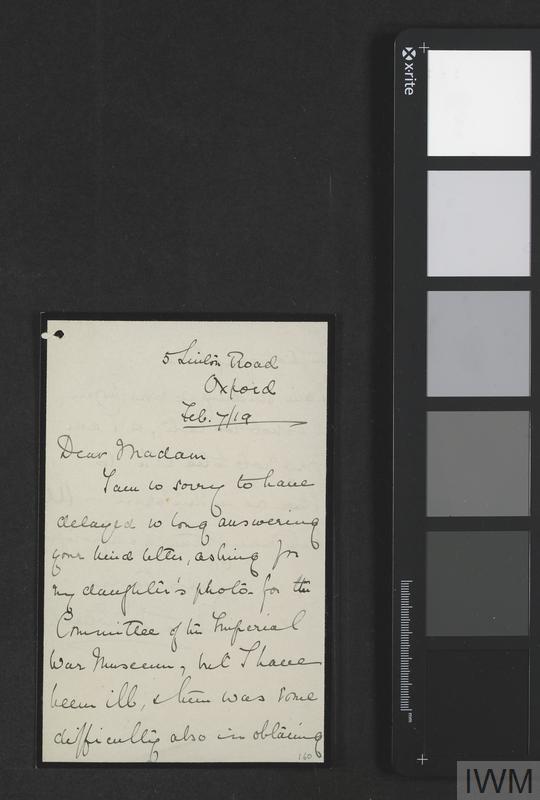 x-rite
5 Linton Road
Oxford
Feb. 7/19
Dear Madam
I am so sorry to have
delayed so long answering
your kind letter, asking for
my daughter's photo- for the
Committee of the Imperial
War Museum, but I have
been ill, & there was some
difficulty also in obtaining
160
mm
IWM